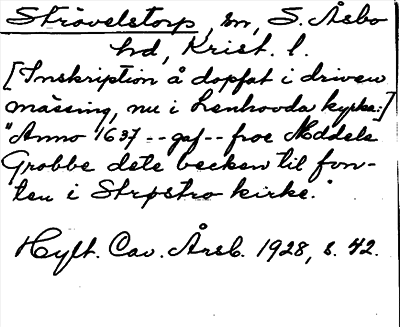 Strövelstorp, sn, S. Åsbo
hd, Krist. l.
[Inskription å dopfat i driven
mässing, nu i Lenhovda kyrka:]
"Anno 1637 -- gaf -- froe Mddels
Grobbe dete becken til fon-
ten i Strpstro kirke."
Hylt. Cav. Årsb. 1928, s. 42.